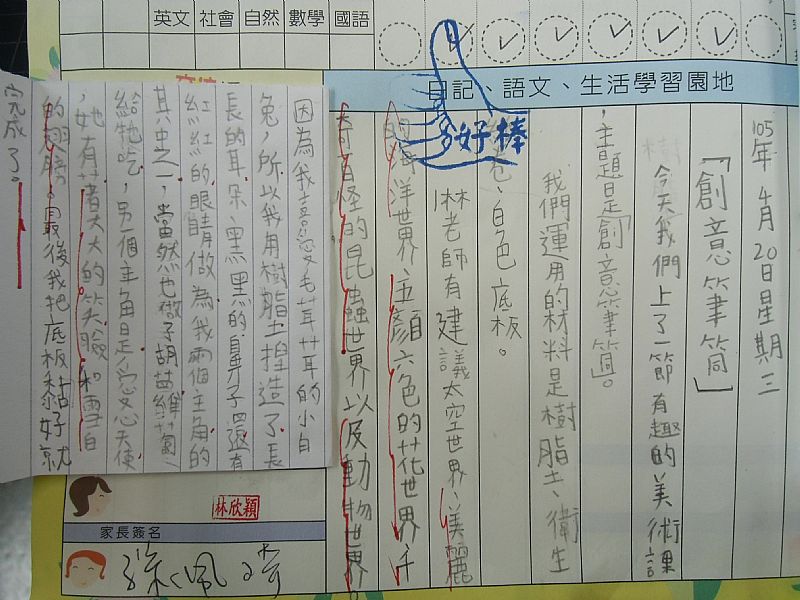 英文 社會 自然 數學 國語
日記、語文、生活學習園地
好棒
105年4月20日星期三
「創意筆筒」
今天我們上了一節有趣的美術課
，主題是「創意筆筒」。
我們運用的材料是樹脂土、衛生
卷、白色底板。
林老師有建議太空世界、美麗
海洋世界、五顏六色的花世界、千
奇百怪的昆蟲世界以及動物世界。
因為我喜愛毛茸茸的小白
兔，所以我用樹脂土捏造了長
長的耳朵、黑黑的鼻子還有
紅紅的眼睛做為我兩個主角的
其中之一，當然也做了胡蘿蔔、
給牠吃，另一個主角是愛心天使
，她有著大大的笑臉和雪白
的翅膀。最後我把底板黏好就
完成了。
林欣穎
家長簽名